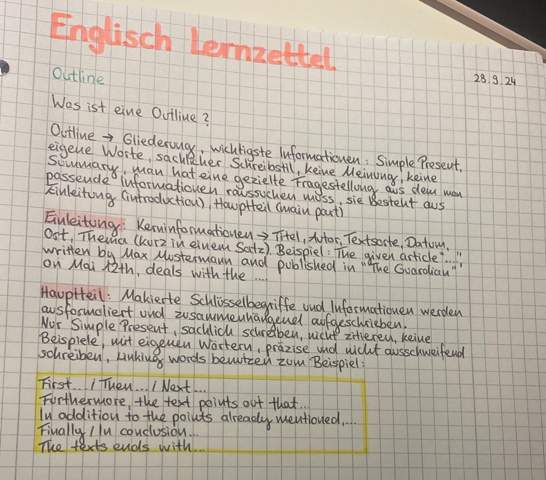 Englisch Lernzettel
28.9.24
Outline
Was ist eine Outline?
Outline → Gliederung, wichtigste Informationen: Simple Present,
eigene Worte, sachlicher Schreibstil, keine Meinung, keine
Summary, man hat eine gezielte Fragestellung aus dem man
passende Informationen raussuchen muss, sie besteht aus
Einleitung (introduction), Hauptteil (main part)
Einleitung: Kerninformationen → Titel, Autor, Textsorte, Datum,
Ort, Thema (kurz in einem Satz). Beispiel: The given article "...",
written by Max Mustermann and published in "The Guardian"
on Mai 12th, deals with the ....
Hauptteil: Makierte Schlüsselbegriffe und Informationen werden
ausformuliert und zusammenhängend aufgeschrieben.
Nur Simple Present, sachlich schreiben, nicht zitieren, keine
Beispiele, mit eigenen Wörtern, präzise und nicht ausschweifend
schreiben, Linking words benutzen zum Beispiel:
First... / Then... / Next...
Furthermore, the text points out that...
In addition to the points already mentioned,...
Finally / In conclusion...
The texts ends with...